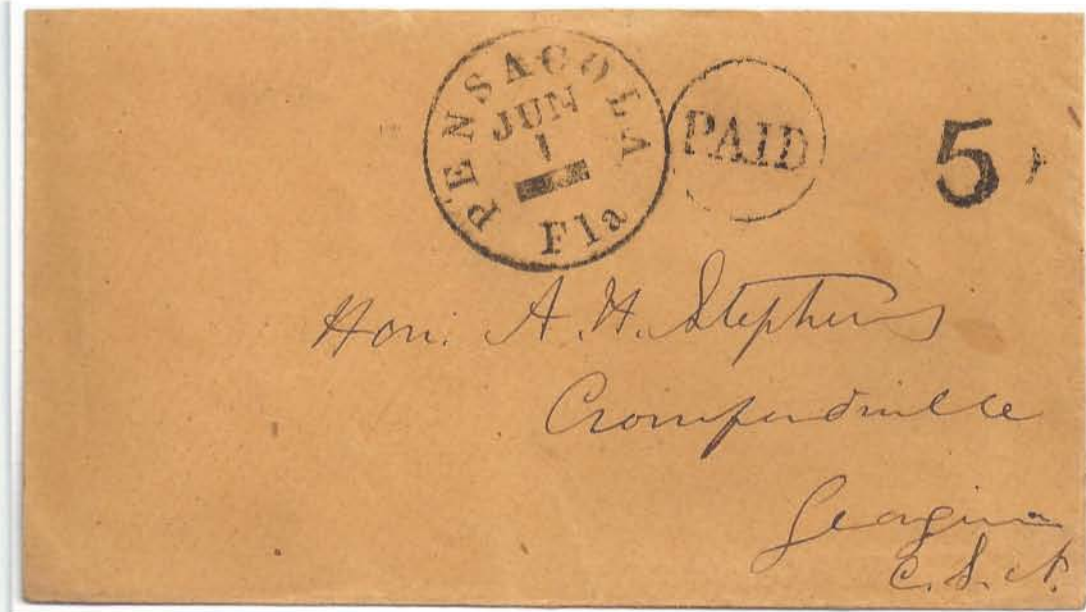 PENSACOLA Fla
JUN
1
PAID
5
Hon. A. H. Stephens
Crawfordville
Georgia
C. S. A.